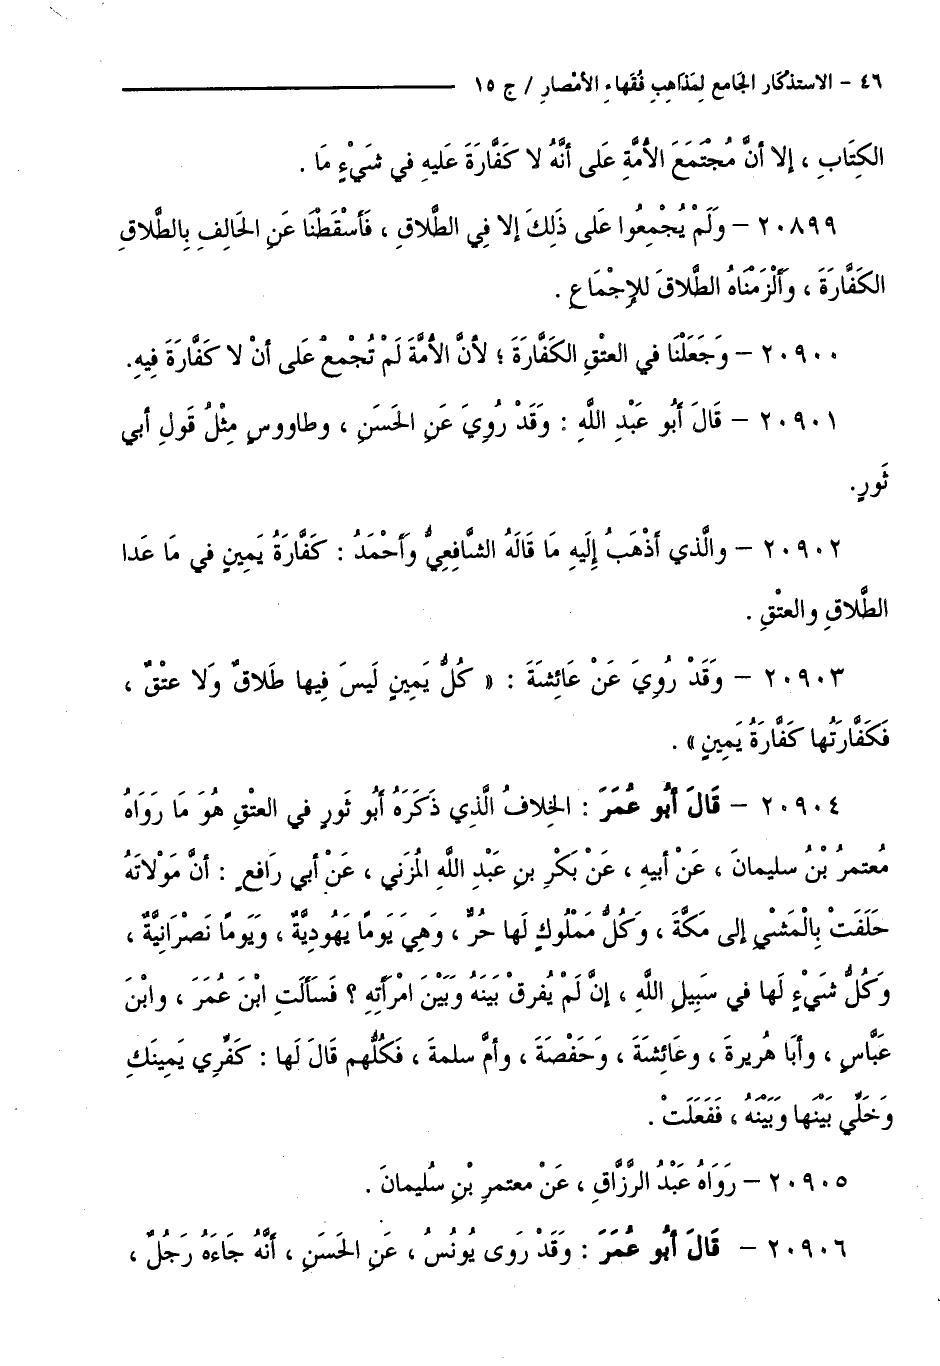 ٤٦ - الاستذكار الجامع لِمَذاهِبِ فُقَهاءِ الأمْصارِ / ج ١٥
الكِتَابِ ، إلا أنَّ مُجْتَمَعَ الأُمَّةِ عَلى أنَّهُ لا كَفَّارَةَ عَليهِ في شَيْءٍ مَا .
٢٠٨٩٩ - وَلَمْ يُجْمِعُوا عَلى ذَلِكَ إلا فِي الطَّلاقِ ، فَأسْقَطْنَا عَنِ الحَالِفِ بِالطَّلاقِ
الكَفَّارَةَ ، وَأَلْزَمْنَاهُ الطَّلاقَ للإجْمَاعِ .
٢٠٩٠٠ - وَجَعَلْنَا في العتْقِ الكَفَّارَةَ ؛ لأنَّ الأُمَّةَ لَمْ تُجْمعْ عَلى أنْ لا كَفَّارَةَ فِيهِ.
٢٠٩٠١ - قَالَ أبُو عَبْدِ اللَّهِ : وَقَدْ رُوِيَ عَنِ الحَسَنِ ، وطاووسٍ مِثْلُ قَولِ أبي
ثَورٍ.
٢٠٩٠٢ - والَّذي أذْهَبُ إِلَيهِ مَا قَالَهُ الشَّافِعِيُّ وَأحْمَدُ : كَفَّارَةُ يَمِينٍ في مَا عَدا
الطَّلاقِ والعتْقِ .
٢٠٩٠٣ - وَقَدْ رُوِيَ عَنْ عَائِشَةَ : « كُلُّ يَمِينٍ لَيسَ فِيها طَلاقٌ وَلا عتْقٌ ،
فَكَفَّارَتُها كَفَّارَةُ يَمِينٍ » .
٢٠٩٠٤ - قَالَ أبُو عُمَرَ : الخِلافُ الَّذِي ذَكَرَهُ أبُو ثَورٍ في العتْقِ هُوَ مَا رَوَاهُ
مُعتمرُ بْنُ سليمانَ ، عَنْ أبيهِ ، عَنْ بَكْرِ بنِ عَبْدِ اللَّهِ المُزَني ، عَنْ أبي رَافعٍ : أنَّ مَوْلاتَهُ
حَلَفَتْ بِالْمَشْيِ إلى مَكَّةَ ، وَكُلُّ مَمْلُوكٍ لَها حُرٌّ ، وَهِيَ يَومًا يَهُودِيَّةٌ ، وَيَومًا نَصْرَانِيَّةٌ ،
وَكُلُّ شَيْءٍ لَها في سَبِيلِ اللَّهِ ، إنْ لَمْ يُفرقْ بَينَهُ وَبَيْنَ امْرَأتِهِ ؟ فَسَألَتِ ابْنَ عُمَرَ ، وابْنَ
عَبَّاسٍ ، وأبَا هُريرةَ ، وعَائِشَةَ ، وَحَفْصَةَ ، وأمَّ سلمةَ ، فَكُلُّهم قَالَ لَها : كَفِّرِي يَمِينَكِ
وَخَلِّي بَيْنَها وَبَيْنَهُ ، فَفَعَلَتْ .
٢٠٩٠٥ - رَوَاهُ عَبْدُ الرَّزَّاقِ ، عَنْ معتمرِ بْنِ سُليمانَ .
٢٠٩٠٦ - قَالَ أبُو عُمَرَ : وَقَدْ رَوى يُونُسُ ، عَنِ الحَسَنِ ، أنَّهُ جَاءَهُ رَجُلٌ ،